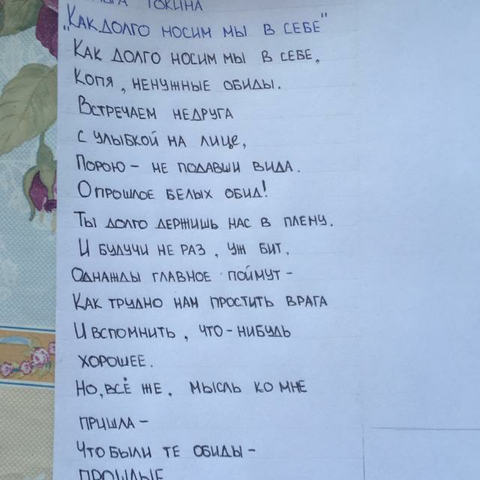 ТОКИНА
"КАК ДОЛГО НОСИМ МЫ В СЕБЕ"
КАК ДОЛГО НОСИМ МЫ В СЕБЕ,
КОПЯ, НЕНУЖНЫЕ ОБИДЫ.
ВСТРЕЧАЕМ НЕДРУГА
С УЛЫБКОЙ НА ЛИЦЕ,
ПОРОЮ - НЕ ПОДАВШИ ВИДА.
О ПРОШЛОЕ БЕЛЫХ ОБИД!
ТЫ ДОЛГО ДЕРЖИШЬ НАС В ПЛЕНУ.
И БУДУЧИ НЕ РАЗ, УЖ БИТ,
ОДНАЖДЫ ГЛАВНОЕ ПОЙМУТ -
КАК ТРУДНО НАМ ПРОСТИТЬ ВРАГА
И ВСПОМНИТЬ, ЧТО-НИБУДЬ
ХОРОШЕЕ.
НО, ВСЁ ЖЕ, МЫСЛЬ КО МНЕ
ПРИШЛА -
ЧТО БЫЛИ ТЕ ОБИДЫ -
ПРОШЛЫЕ